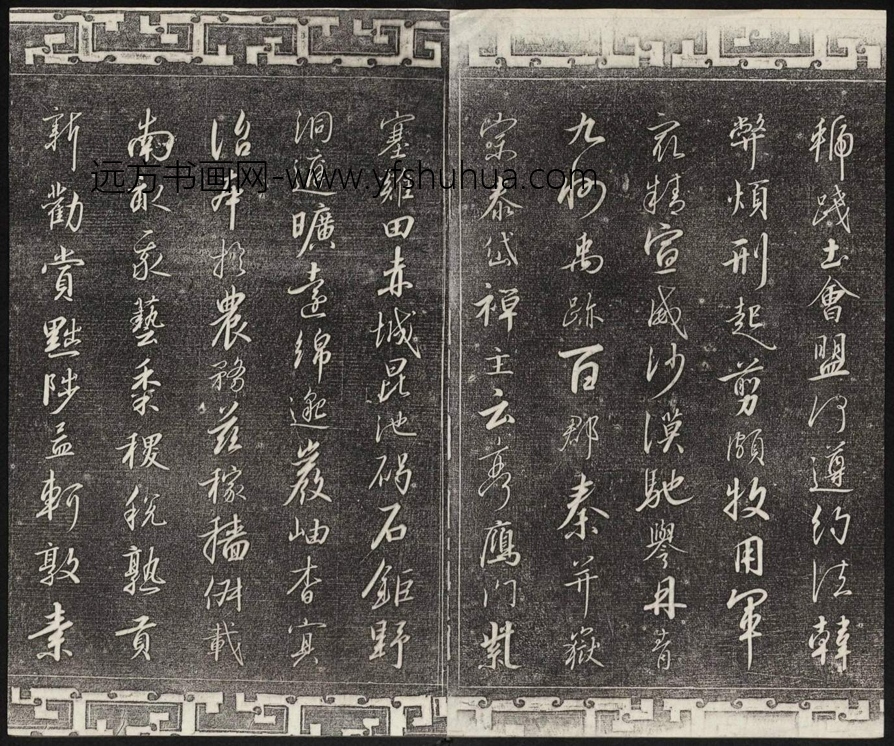 虢踐土會盟何遵約法韓
弊煩刑起翦頗牧用軍
最精宣威沙漠馳譽丹青
九州禹跡百郡秦并嶽
宗泰岱禪主云亭鴈門紫
塞雞田赤城昆池碣石鉅野
洞庭曠遠綿邈巖岫杳冥
治本於農務茲稼穡俶載
南畝我藝黍稷稅熟貢
新勸賞黜陟孟軻敦素
远方书画网-www.yfshuhua.com